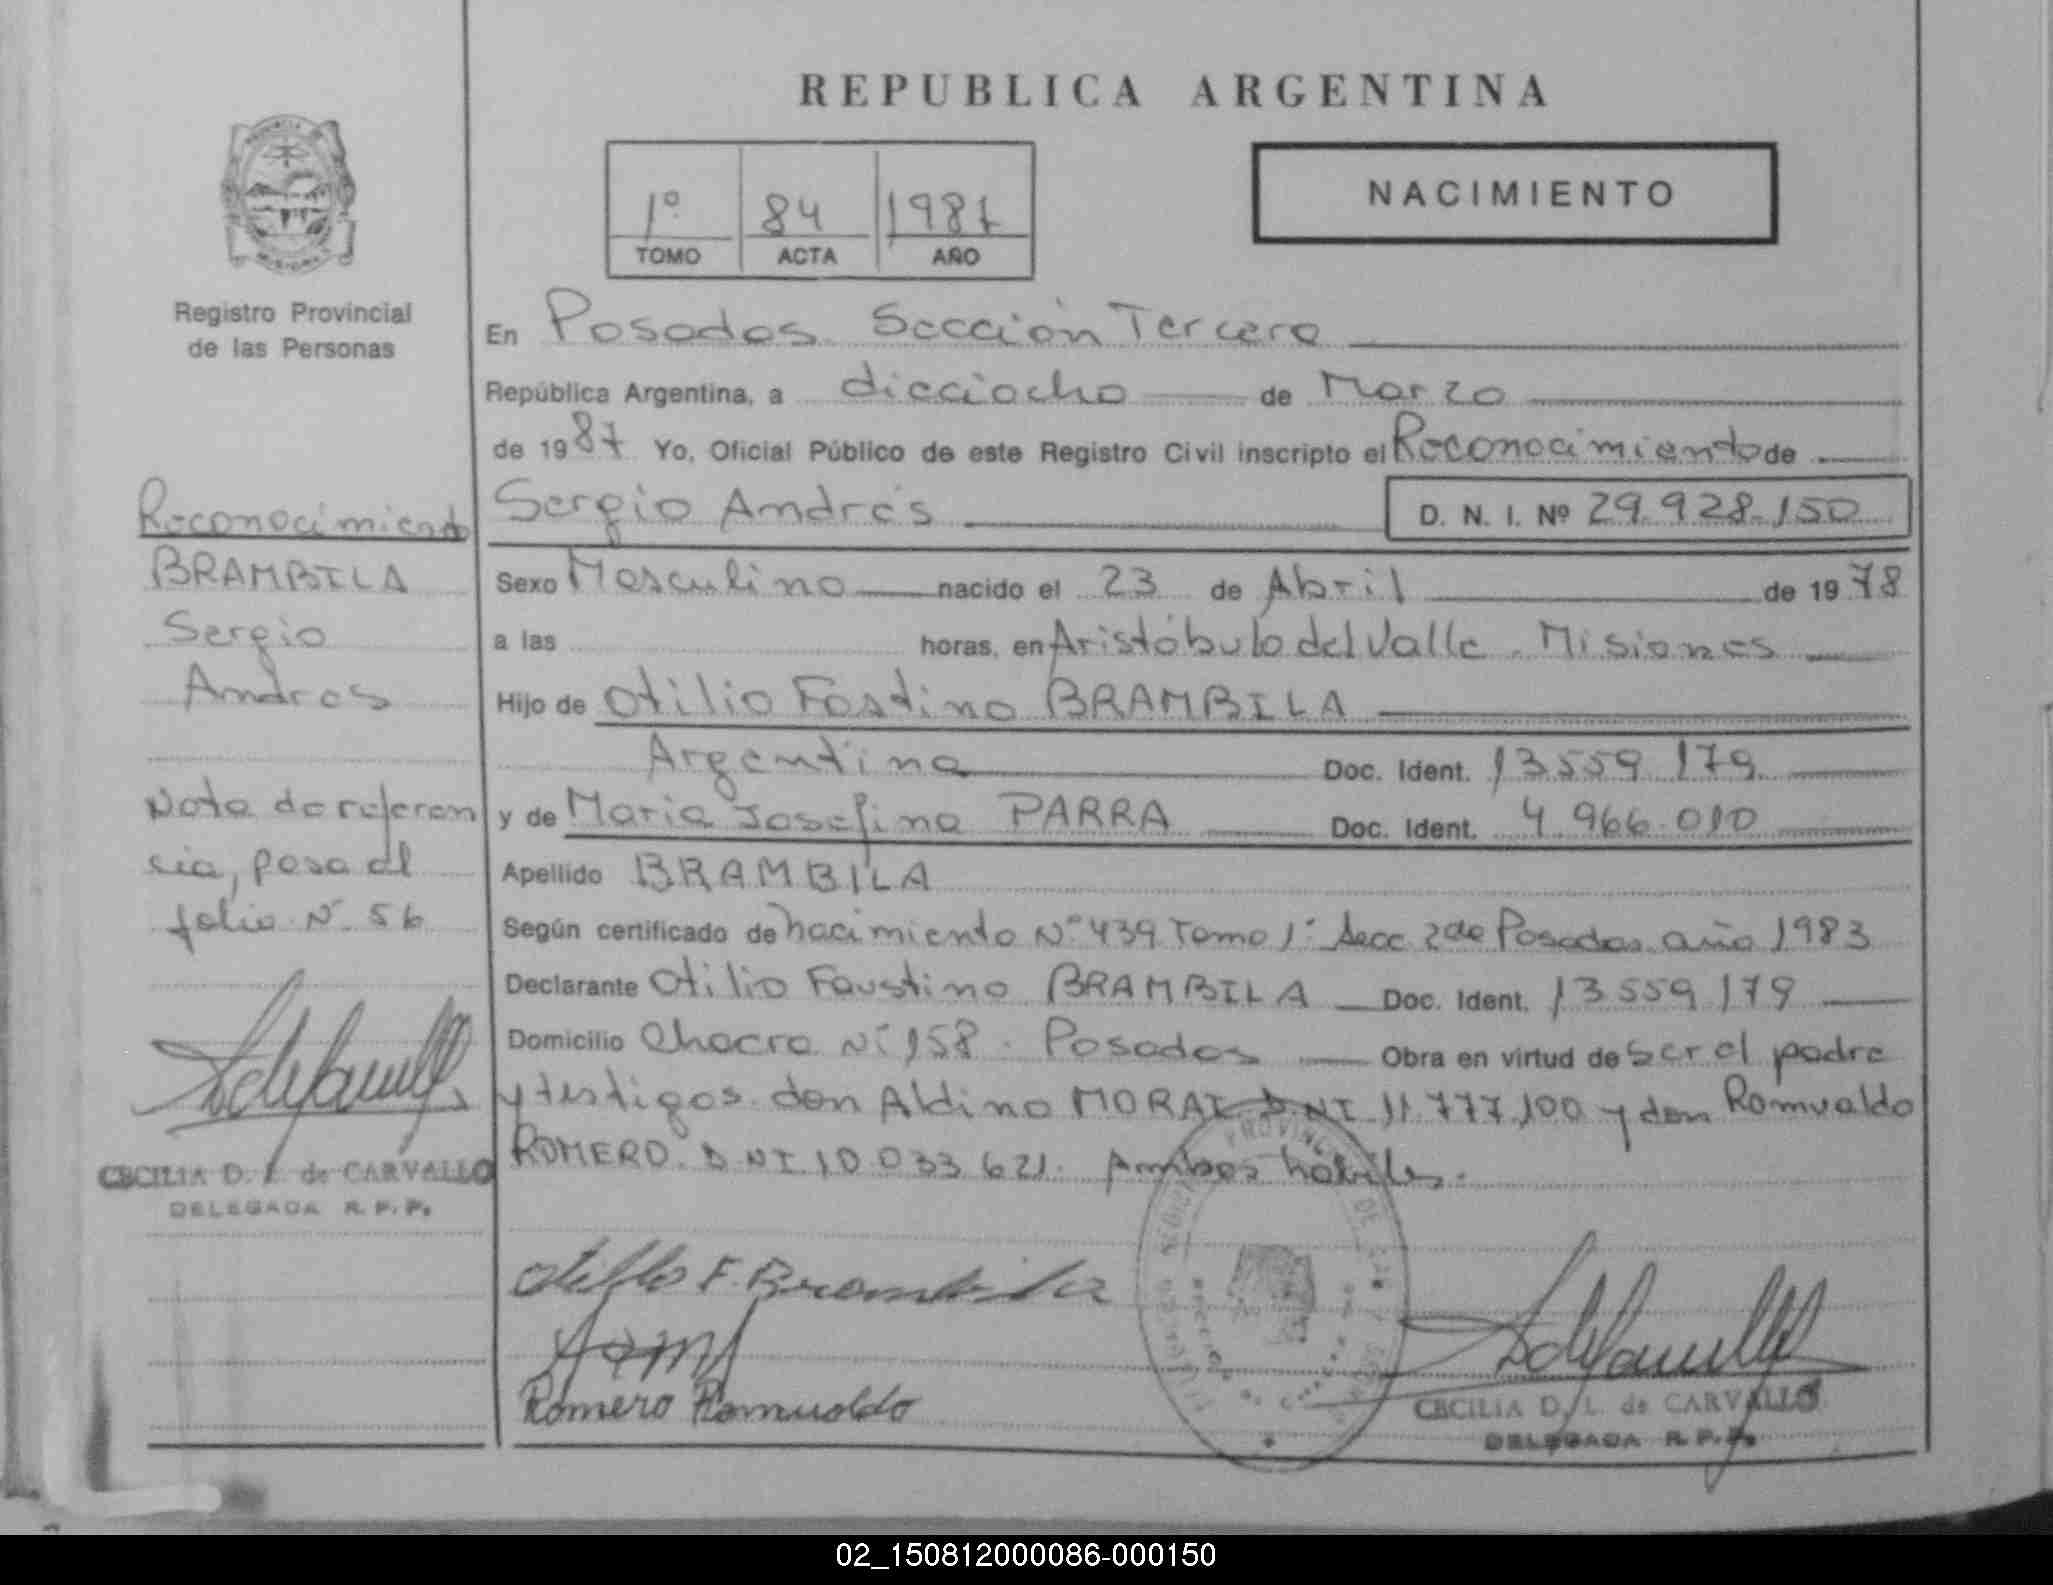 REPUBLICA ARGENTINA
1º 84 1987
TOMO ACTA AÑO
NACIMIENTO
Registro Provincial
de las Personas
Reconocimiento
BRAMBILA
Sergio
Andres
Nota de referen
cia, pasa al
folio Nº 56
CECILIA D. L. de CARVALLO
DELEGADA R. P. P.
En Posadas Sección Tercera
República Argentina, a dieciocho de Marzo
de 1987 Yo, Oficial Público de este Registro Civil inscripto el Reconocimiento de
Sergio Andrés D. N. I. Nº 29.928.150
Sexo Masculino nacido el 23 de Abril de 1978
a las horas, en Aristóbulo del Valle - Misiones
Hijo de Otilio Fostino BRAMBILA
Argentina Doc. Ident. 13.559.179
y de Maria Josefina PARRA Doc. Ident. 4.966.010
Apellido BRAMBILA
Según certificado de nacimiento Nº 439 Tomo 1º Secc 2da Posadas año 1983
Declarante Otilio Faustino BRAMBILA Doc. Ident. 13.559.179
Domicilio Chacra Nº 158 - Posadas Obra en virtud de ser el padre
y testigos don Aldino MORAI DNI 11.777.100 y don Romualdo
ROMERO DNI 10.033.621. Ambos hábiles.
Otilio F. Brambila
Romero Romualdo
PROVINCIA DE
CECILIA D. L. de CARVALLO
DELEGADA R. P. P.
02_150812000086-000150